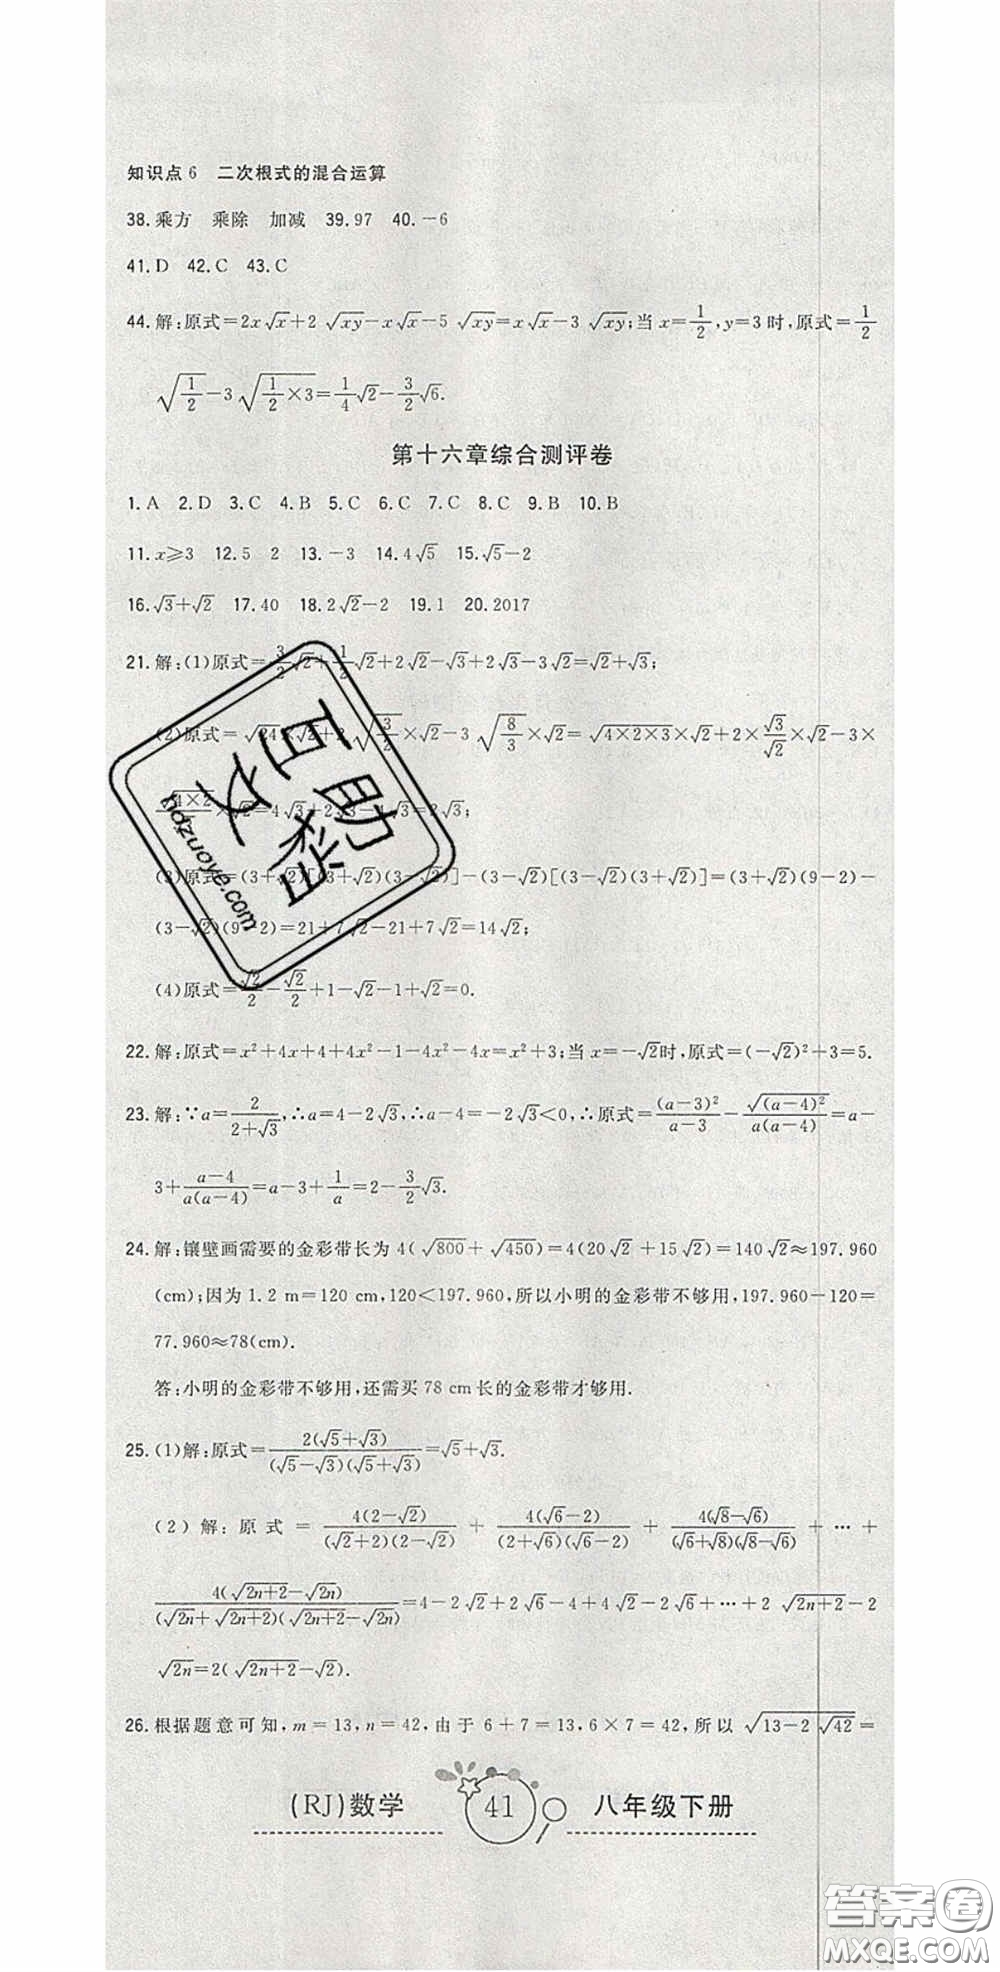 知识点6 二次根式的混合运算
38.乘方 乘除 加减 39.97 40.-6
41.D 42.C 43.C
44.解:原式=2x√x+2√(xy)-x√x-5√(xy)=x√x-3√(xy);当x=1/2,y=3时,原式=1/2
√(1/2)-3√(1/2×3)=1/4√2-3/2√6.
第十六章综合测评卷
1.A 2.D 3.C 4.B 5.C 6.C 7.C 8.C 9.B 10.B
11.x≥3 12.5 2 13.-3 14.4√5 15.√5-2
16.√3+√2 17.40 18.2√2-2 19.1 20.2017
21.解:(1)原式=3/2√2+1/2√2+2√2-√3+2√3-3√2=√2+√3;
(2)原式=√24×√2+2√(3/2)×√2-3√(8/3)×√2=√(4×2×3)×√2+2×√3/√2×√2-3×
√(4×2)/√3×√2=4√3+2√3-4√3=2√3;
(3)原式=(3+√2)[(3+√2)(3-√2)]-(3-√2)[(3-√2)(3+√2)]=(3+√2)(9-2)-
(3-√2)(9-2)=21+7√2-21+7√2=14√2;
(4)原式=√2/2-√2/2+1-√2-1+√2=0.
22.解:原式=x²+4x+4+4x²-1-4x²-4x=x²+3;当x=-√2时,原式=(-√2)²+3=5.
23.解:∵a=2/(2+√3),∴a=4-2√3,∴a-4=-2√3<0,∴原式=(a-3)²/(a-3)-√((a-4)²)/(a(a-4))=a-
3+(a-4)/(a(a-4))=a-3+1/a=2-3/2√3.
24.解:镶壁画需要的金彩带长为4(√800+√450)=4(20√2+15√2)=140√2≈197.960
(cm);因为1.2 m=120 cm,120<197.960,所以小明的金彩带不够用,197.960-120=
77.960≈78(cm).
答:小明的金彩带不够用,还需买78 cm长的金彩带才够用.
25.(1)解:原式=2(√5+√3)/((√5-√3)(√5+√3))=√5+√3.
(2)解:原式=4(2-√2)/((√2+2)(2-√2))+4(√6-2)/((2+√6)(√6-2))+4(√8-√6)/((√6+√8)(√8-√6))+…+
4(√(2n+2)-√(2n))/((√(2n)+√(2n+2))(√(2n+2)-√(2n)))=4-2√2+2√6-4+4√2-2√6+…+2√(2n+2)-2
√(2n)=2(√(2n+2)-√2).
26.根据题意可知,m=13,n=42,由于6+7=13,6×7=42,所以√(13-2√42)=
(RJ)数学 41 八年级下册
互助
文稻
hdzuoye.com
答案卷
MXQE.COM